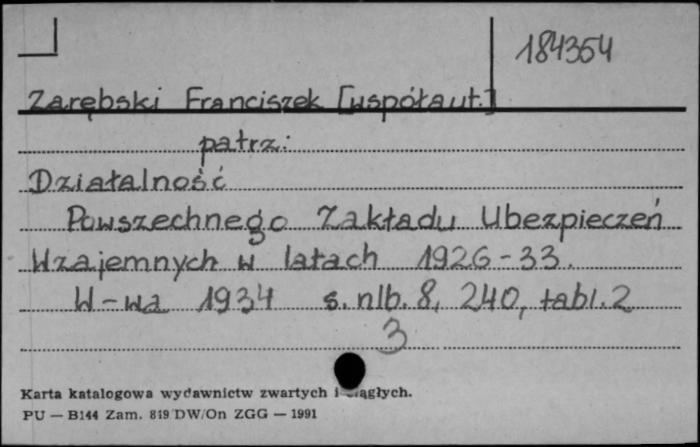 184354
Zarębski Franciszek [współaut.]
patrz:
Działalność
Powszechnego Zakładu Ubezpieczeń
Wzajemnych w latach 1926-33.
W-wa 1934 s. nlb. 8, 240, tabl. 2
3
Karta katalogowa wydawnictw zwartych i ciągłych.
PU — B144 Zam. 819 DW/On ZGG — 1991